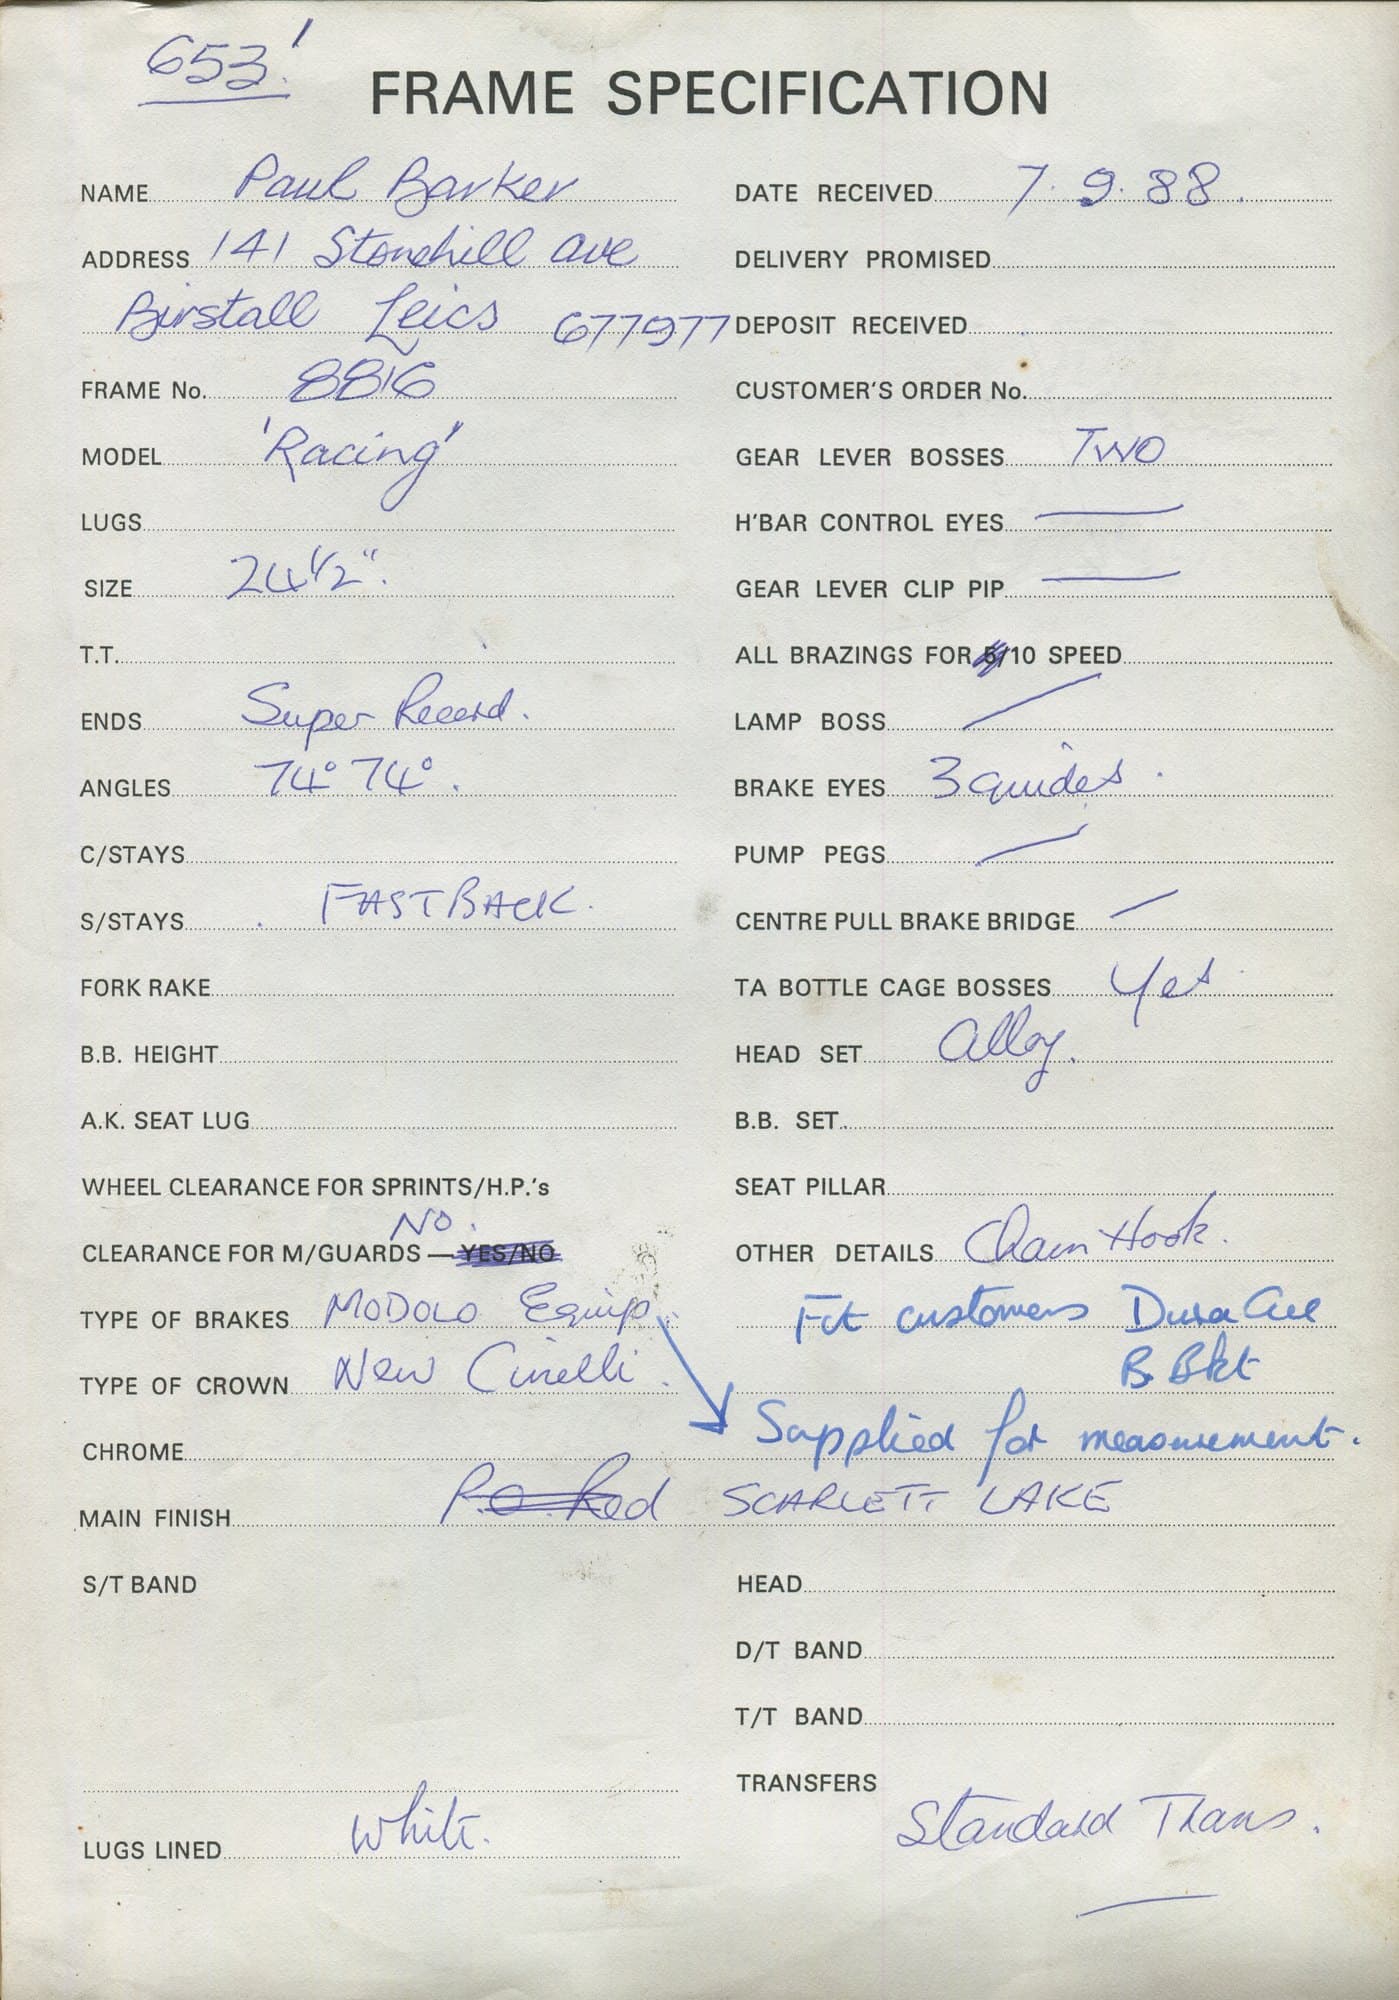 653'
FRAME SPECIFICATION
NAME Paul Barker
ADDRESS 141 Stonehill Ave
Birstall Leics 677977
FRAME No. 8816
MODEL 'Racing'
LUGS
SIZE 24 1/2".
T.T.
ENDS Super Record.
ANGLES 74° 74°.
C/STAYS
S/STAYS FASTBACK.
FORK RAKE
B.B. HEIGHT
A.K. SEAT LUG
WHEEL CLEARANCE FOR SPRINTS/H.P.'s
NO.
CLEARANCE FOR M/GUARDS — YES/NO
TYPE OF BRAKES MODOLO Equip.
TYPE OF CROWN New Cinelli.
CHROME
MAIN FINISH P.O. Red SCARLETT LAKE
S/T BAND
LUGS LINED White.
DATE RECEIVED 7.9.88.
DELIVERY PROMISED
DEPOSIT RECEIVED
CUSTOMER'S ORDER No.
GEAR LEVER BOSSES TWO
H'BAR CONTROL EYES —
GEAR LEVER CLIP PIP —
ALL BRAZINGS FOR 5/10 SPEED
LAMP BOSS —
BRAKE EYES 3 guides.
PUMP PEGS —
CENTRE PULL BRAKE BRIDGE —
TA BOTTLE CAGE BOSSES Yes
HEAD SET Alloy.
B.B. SET
SEAT PILLAR
OTHER DETAILS Chain Hook.
Fit customers Dura Ace
B. Bkt
Supplied for measurement.
HEAD
D/T BAND
T/T BAND
TRANSFERS
Standard Trans.